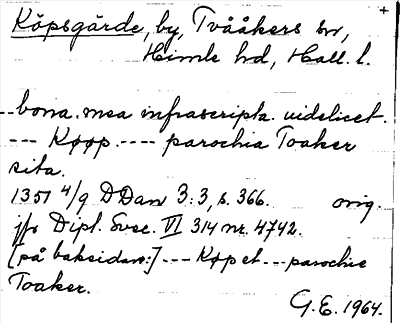 Köpsgärde, by, Tvååkers sn,
Himle hd, Hall. l.
--bona mea infrascripta. uidelicet.
--- Køøp. ---- parochia Toaker
sita.
1351 4/9 DDan 3:3, s. 366. orig.
jfr Dipl. Svec. VI 314 nr. 4742.
[på baksidan:] --- Køp et --- parochie
Toaker.
G.E. 1964.